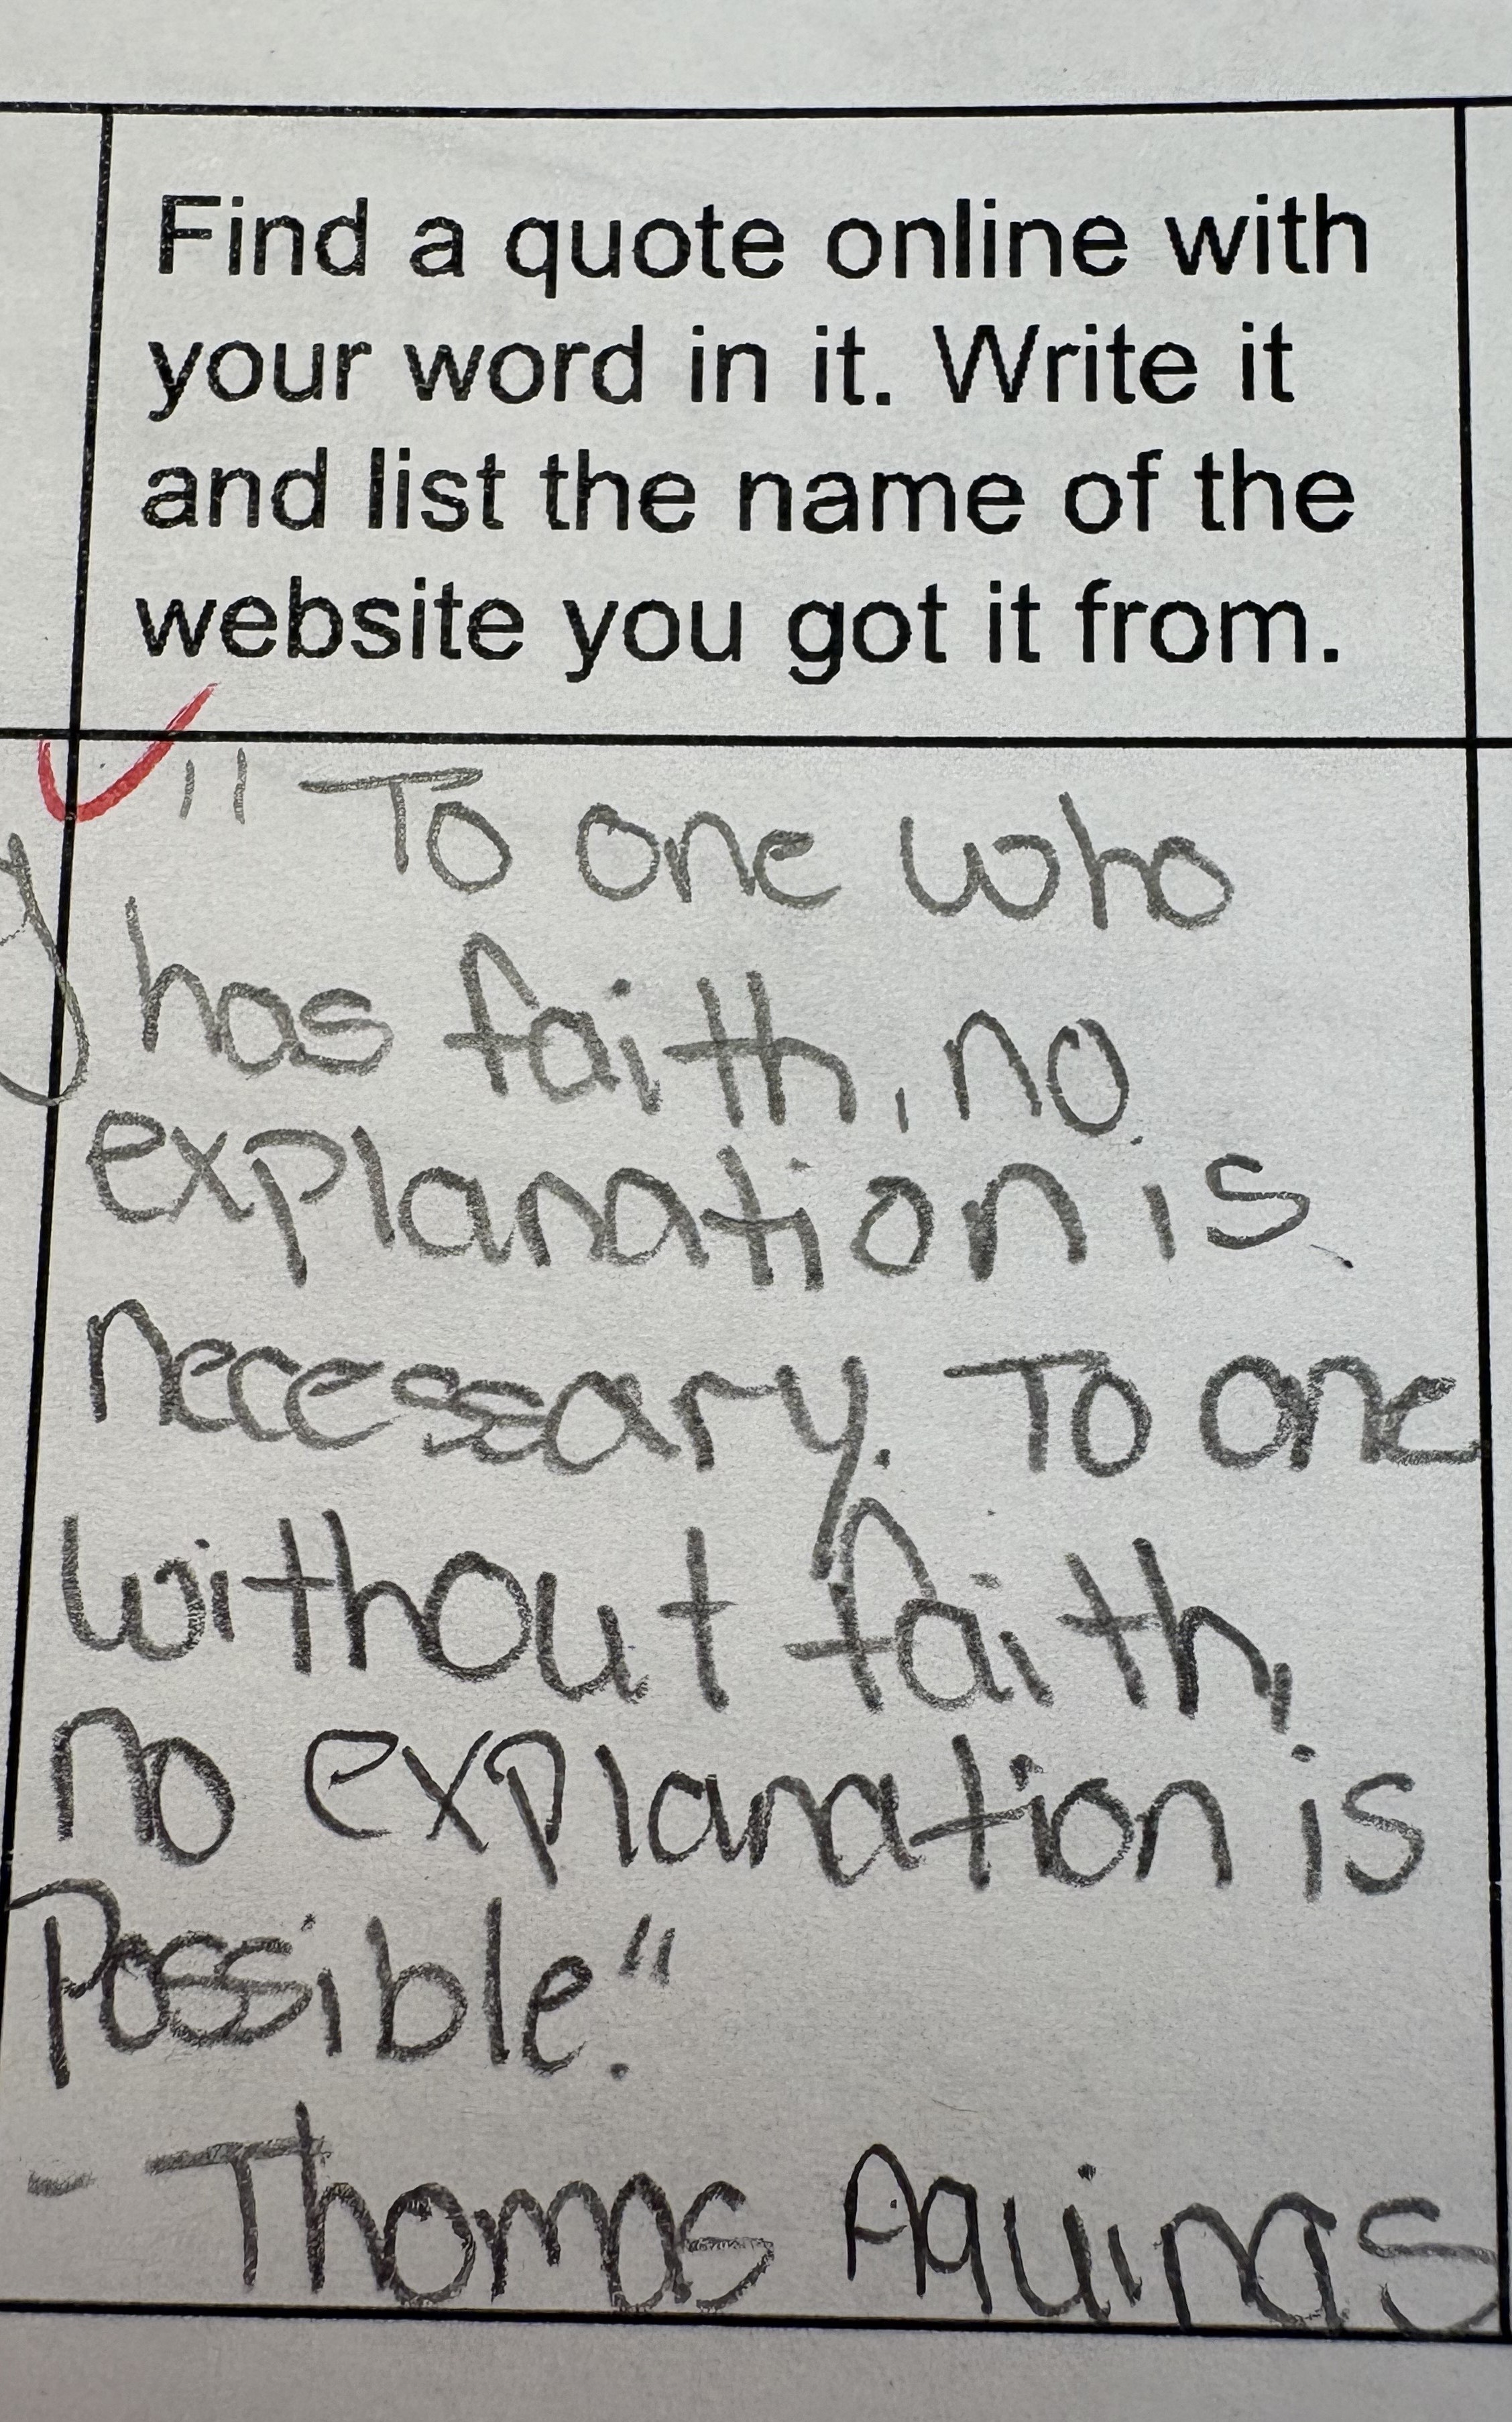 Find a quote online with
your word in it. Write it
and list the name of the
website you got it from.
"To one who
has faith, no
explanation is
necessary. To one
without faith,
no explanation is
Possible."
- Thomas Aquinas